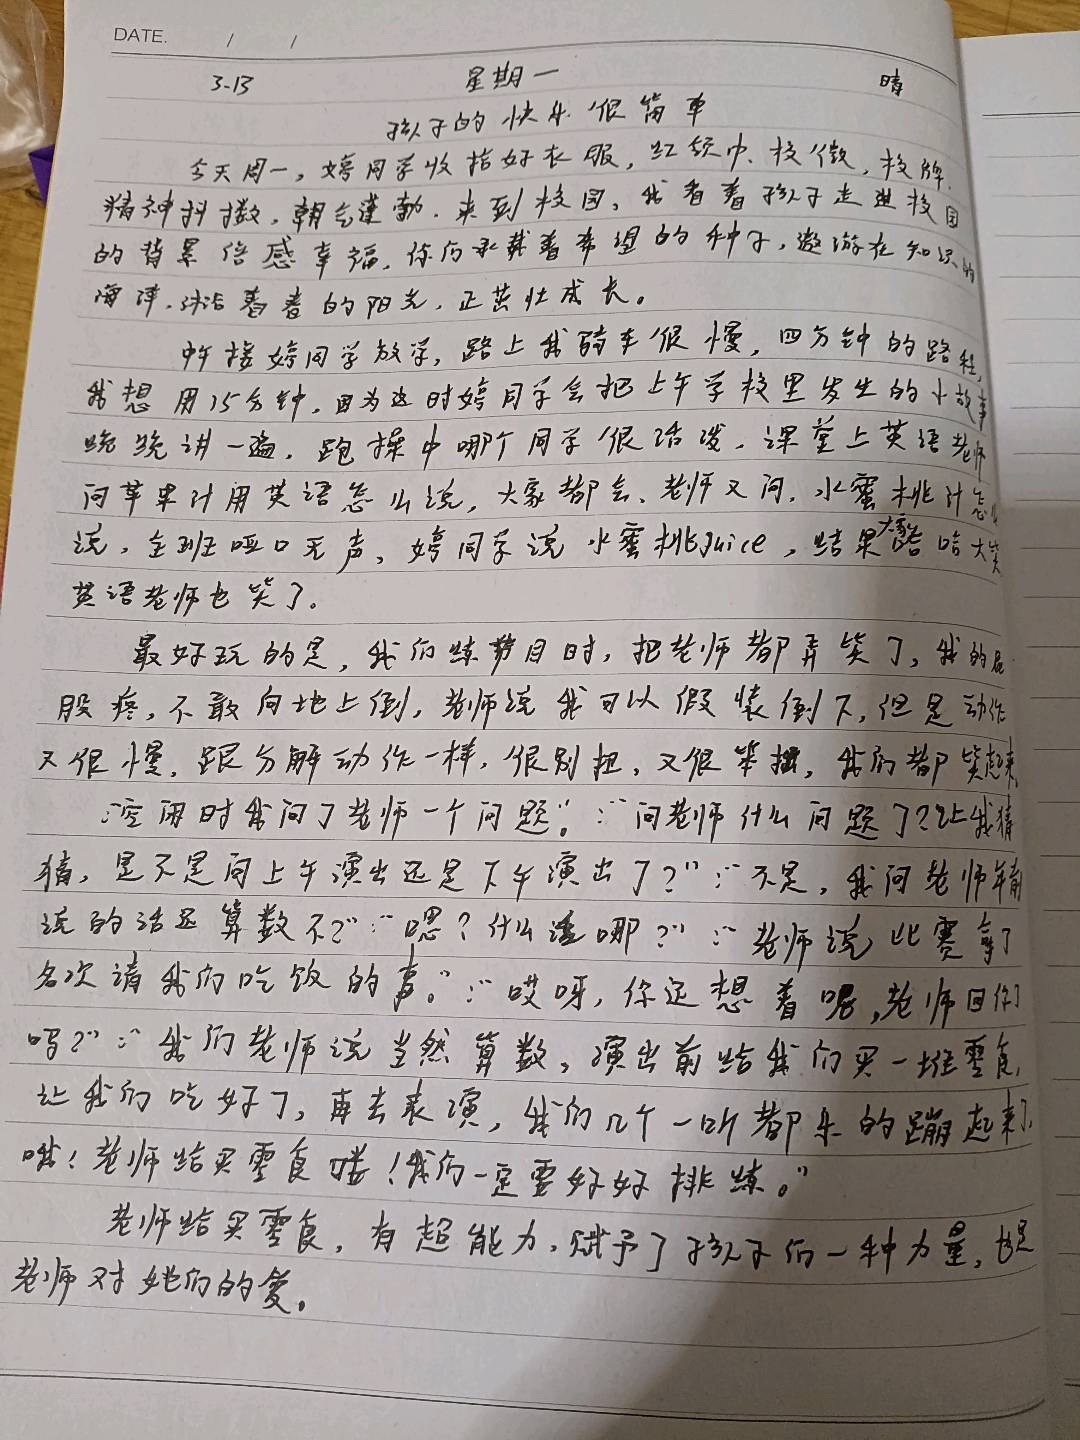 DATE. / /
3-13 星期一 晴
孩子的快乐很简单
今天周一，婷同学收拾好衣服，红领巾、校徽，校牌.
精神抖擞，朝气蓬勃.来到校园，我看着孩子走进校园
的背景倍感幸福，你们承载着希望的种子，遨游在知识的
海洋.沐浴着春的阳光，正茁壮成长。
中午接婷同学放学，路上我骑车很慢，四分钟的路程，
我想用15分钟，因为这时婷同学会把上午学校里发生的小故事
统统讲一遍，跑操中哪个同学很活泼、课堂上英语老师
问苹果汁用英语怎么说，大家都会、老师又问，水蜜桃汁怎么
说，全班哑口无声、婷同学说水蜜桃Juice，结果大家哈哈大笑
英语老师也笑了。
最好玩的是，我们练节目时，把老师都弄笑了，我的屁
股疼，不敢向地上倒，老师说我可以假装倒下，但是动作
又很慢，跟分解动作一样，很别扭，又很笨拙，我们都笑起来，
空闲时我问了老师一个问题。”：“问老师什么问题了？让我猜
猜，是不是问上午演出还是下午演出了？”：“不是，我问老师年前
说的话还算数不？”：“嗯？什么话哪？”：“老师说比赛拿了
名次请我们吃饭的事。”：“哎呀，你还想着呢，老师回你了
吗？”：“我们老师说当然算数，演出前给我们买一堆零食，
让我们吃好了，再去表演，我们几个一听都乐的蹦起来了，
哦！老师给买零食喽！我们一定要好好排练。”
老师给买零食，有超能力，赋予了孩子们一种力量，也是
老师对她们的爱。